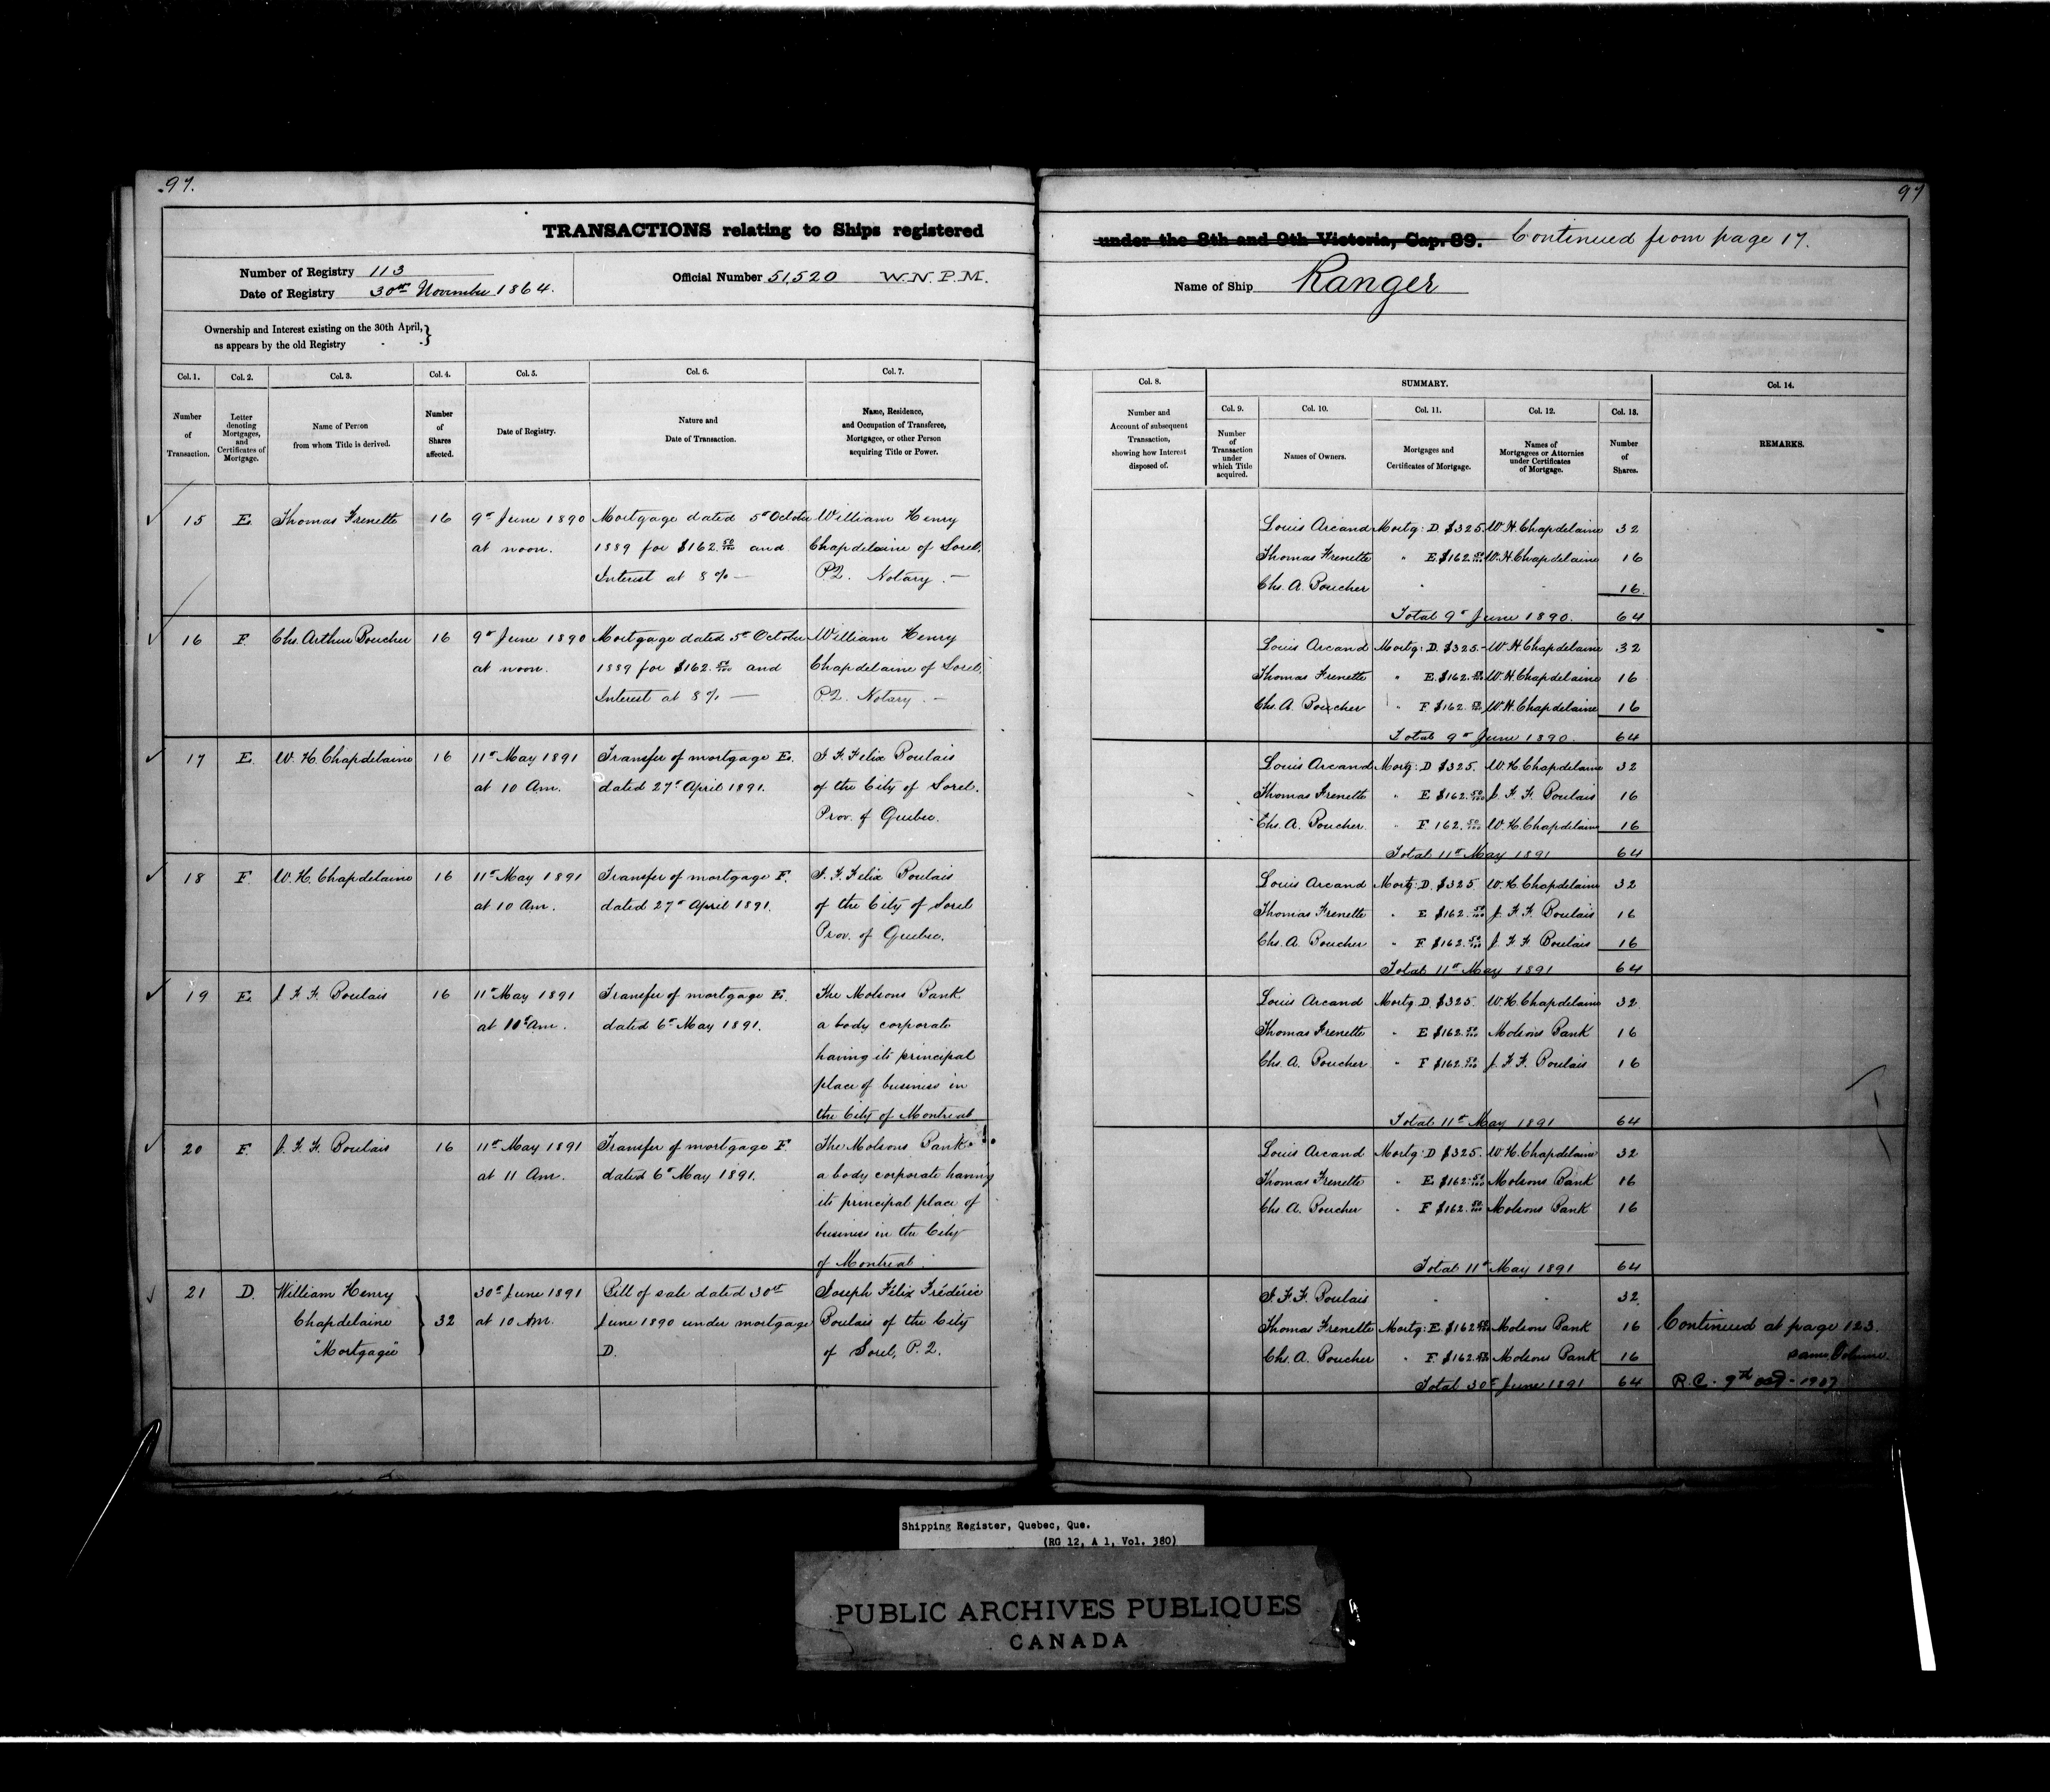 97.
97
TRANSACTIONS relating to Ships registered
under the 8th and 9th Victoria, Cap. 89. Continued from page 17.
Number of Registry 113
Date of Registry 30th November 1864.
Official Number 51,520 W.N.P.M.
Name of Ship Ranger
Ownership and Interest existing on the 30th April,
as appears by the old Registry
Col. 1. Col. 2. Col. 3. Col. 4. Col. 5. Col. 6. Col. 7.
Number of Transaction.
Letter denoting Mortgages, and Certificates of Mortgage.
Name of Person from whom Title is derived.
Number of Shares affected.
Date of Registry.
Nature and Date of Transaction.
Name, Residence, and Occupation of Transferee, Mortgagee, or other Person acquiring Title or Power.
15 E Thomas Frenette 16 9th June 1890 Mortgage dated 5th October William Henry
at noon. 1889 for $162.50/100 and Chapdelaine of Sorel,
Interest at 8% — P.Q. Notary. —
16 F. Chs. Arthur Boucher 16 9th June 1890 Mortgage dated 5th October William Henry
at noon. 1889 for $162.50/100 and Chapdelaine of Sorel,
Interest at 8% — P.Q. Notary. —
17 E. W. H. Chapdelaine 16 11th May 1891 Transfer of mortgage E. J. F. Felix Boulais
at 10 Am. dated 27th April 1891. of the City of Sorel.
Prov. of Quebec.
18 F W. H. Chapdelaine 16 11th May 1891 Transfer of mortgage F. J. F. Felix Boulais
at 10 Am. dated 27th April 1891. of the City of Sorel
Prov. of Quebec.
19 E. J. F. F. Boulais 16 11th May 1891 Transfer of mortgage E. The Molsons Bank
at am. dated 6th May 1891. a body corporate
having its principal
place of business in
the City of Montreal
20 F. J. F. F. Boulais 16 11th May 1891 Transfer of mortgage F. The Molsons Bank
at 11 Am. dated 6th May 1891. a body corporate having
its principal place of
business in the City
of Montreal.
21 D. William Henry 30th June 1891 Bill of sale dated 30th Joseph Félix Frédéric
Chapdelaine 32 at 10 Am. June 1890 under mortgage Boulais of the City
"Mortgagee" D. of Sorel, P.Q.
Col. 8. SUMMARY. Col. 14.
Col. 9. Col. 10. Col. 11. Col. 12. Col. 13.
Number and Account of subsequent Transaction, showing how Interest disposed of.
Number of Transaction under which Title acquired.
Names of Owners.
Mortgages and Certificates of Mortgage.
Names of Mortgagees or Attornies under Certificates of Mortgage.
Number of Shares.
REMARKS.
Louis Arcand Mortg: D $325. W. H. Chapdelaine 32
Thomas Frenette " E $162.50/100 W. H. Chapdelaine 16
Chs. A. Boucher " " 16.
Total 9th June 1890. 64
Louis Arcand Mortg: D. $325.- W. H. Chapdelaine 32
Thomas Frenette " E. $162.50/100 W. H. Chapdelaine 16
Chs. A. Boucher " F $162.50/100 W. H. Chapdelaine 16
Total 9th June 1890. 64
Louis Arcand Mortg: D $325. W. H. Chapdelaine 32
Thomas Frenette " E $162.50/100 J. F. F. Boulais 16
Chs. A. Boucher. " F 162.50/100 W. H. Chapdelaine 16
Total 11th May 1891 64
Louis Arcand Mortg: D. $325 W. H. Chapdelaine 32
Thomas Frenette " E $162.50/100 J. F. F. Boulais 16
Chs. A. Boucher " F $162.50/100 J. F. F. Boulais 16
Total 11th May 1891 64
Louis Arcand Mortg. D. $325. W. H. Chapdelaine 32.
Thomas Frenette " E $162.50/100 Molsons Bank 16
Chs. A. Boucher " F $162.50/100 J. F. F. Boulais 16
Total 11th May 1891 64
Louis Arcand Mortg: D $325. W. H. Chapdelaine 32
Thomas Frenette " E $162.50/100 Molsons Bank 16
Chs. A. Boucher " F $162.50/100 Molsons Bank 16
Total 11th May 1891 64
J. F. F. Boulais " " 32
Thomas Frenette Mortg: E $162.50/100 Molsons Bank 16 Continued at page 123.
Chs. A. Boucher " F. $162.50/100 Molsons Bank 16 same Volume.
Total 30th June 1891 64 R.C. 9th Oct - 1907
Shipping Register, Quebec, Que.
(RG 12, A 1, Vol. 380)
PUBLIC ARCHIVES PUBLIQUES
CANADA